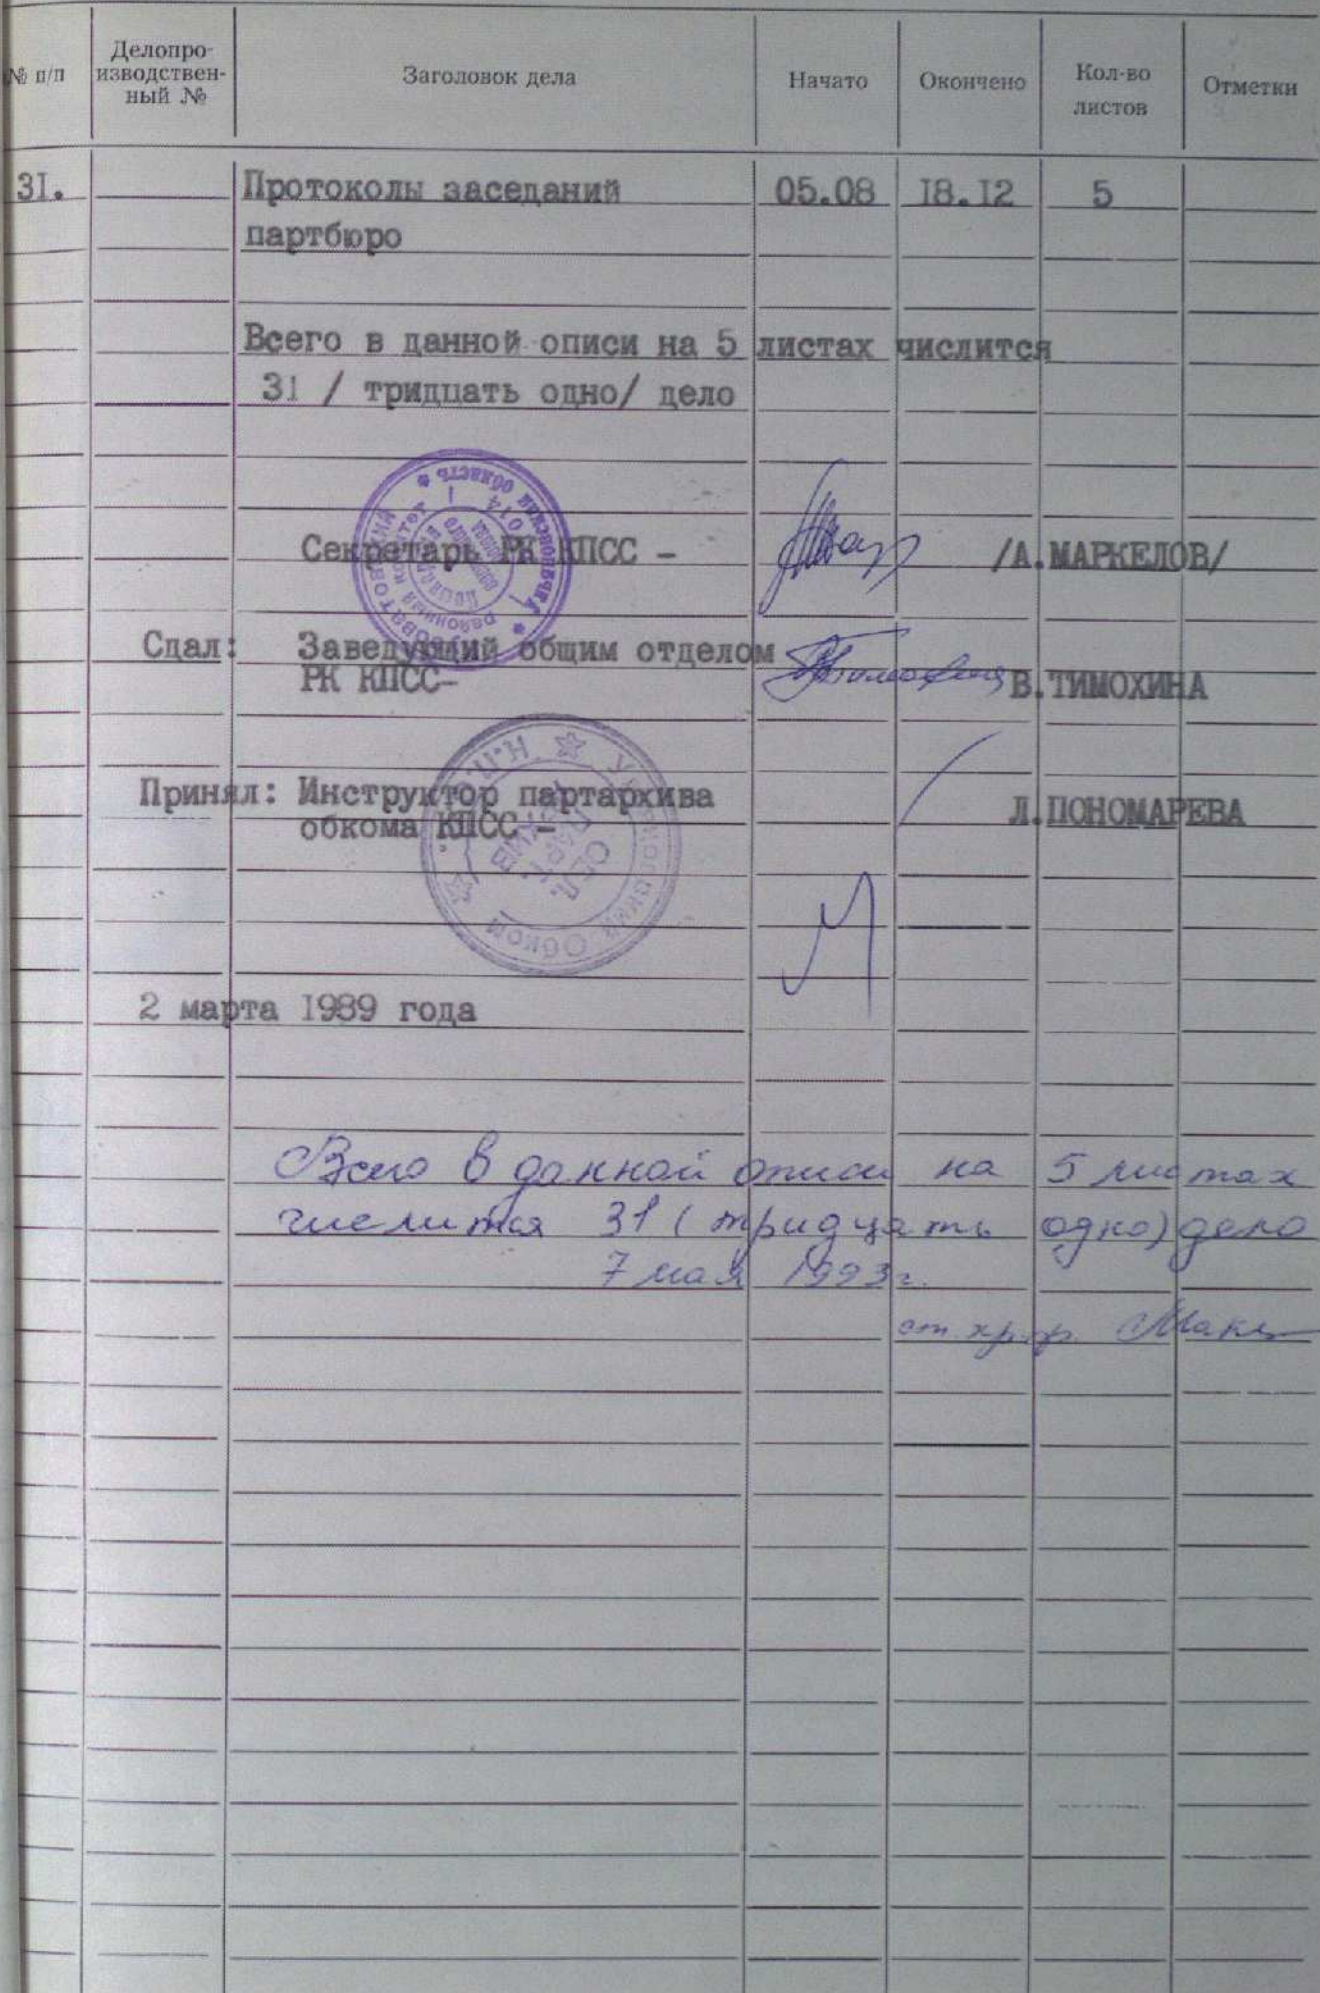 № п/п Делопро-изводствен-ный № Заголовок дела Начато Окончено Кол-во листов Отметки
31. Протоколы заседаний 05.08 18.12 5
партбюро
Всего в данной описи на 5 листах числится
31 / тридцать одно/ дело
Секретарь РК КПСС - /А.МАРКЕЛОВ/
Сдал: Заведующий общим отделом
РК КПСС- В.ТИМОХИНА
Принял: Инструктор партархива
обкома КПСС - Л.ПОНОМАРЕВА
2 марта 1989 года
Всего в данной описи на 5 листах
числится 31 (тридцать одно) дело
7 мая 1993г.
ст хр.